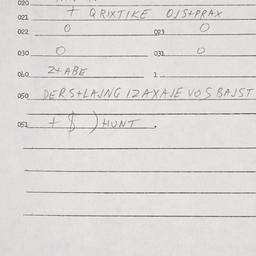 020
021 + QRIXTIKE OJS+PRAX
022 O 023 O
030 O 031 O
040 Z+ABE 1
050 DERS+LAJNG IZAXAJE VOSBAJST
051 + $ ) HUNT .